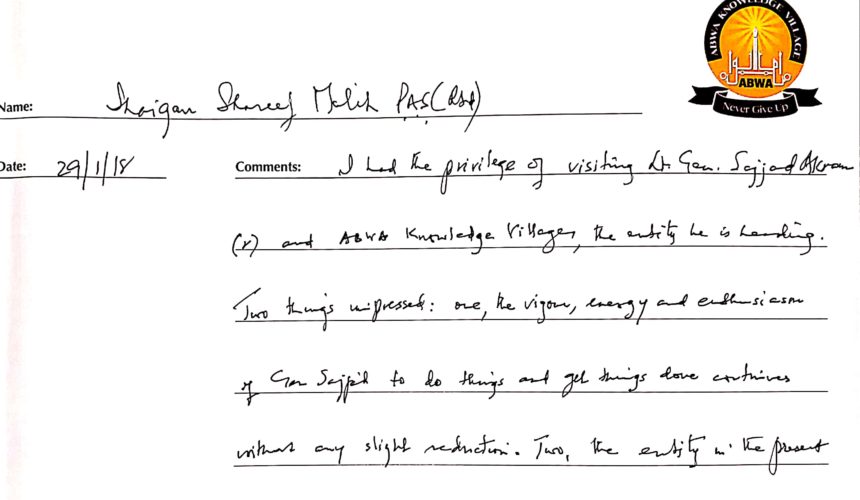 ABWA KNOWLEDGE VILLAGE
ABWA
Never Give Up
Name: Shaigan Shareef Malik PAS (Rtd)
Date: 29/1/18 Comments: I had the privilege of visiting Lt. Gen. Sajjad Akram
(r) and ABWA Knowledge Villages, the entity he is heading.
Two things impressed: one, the vigour, energy and enthusiasm
of Gen Sajjad to do things and get things done continues
without any slight reduction. Two, the entity in the present